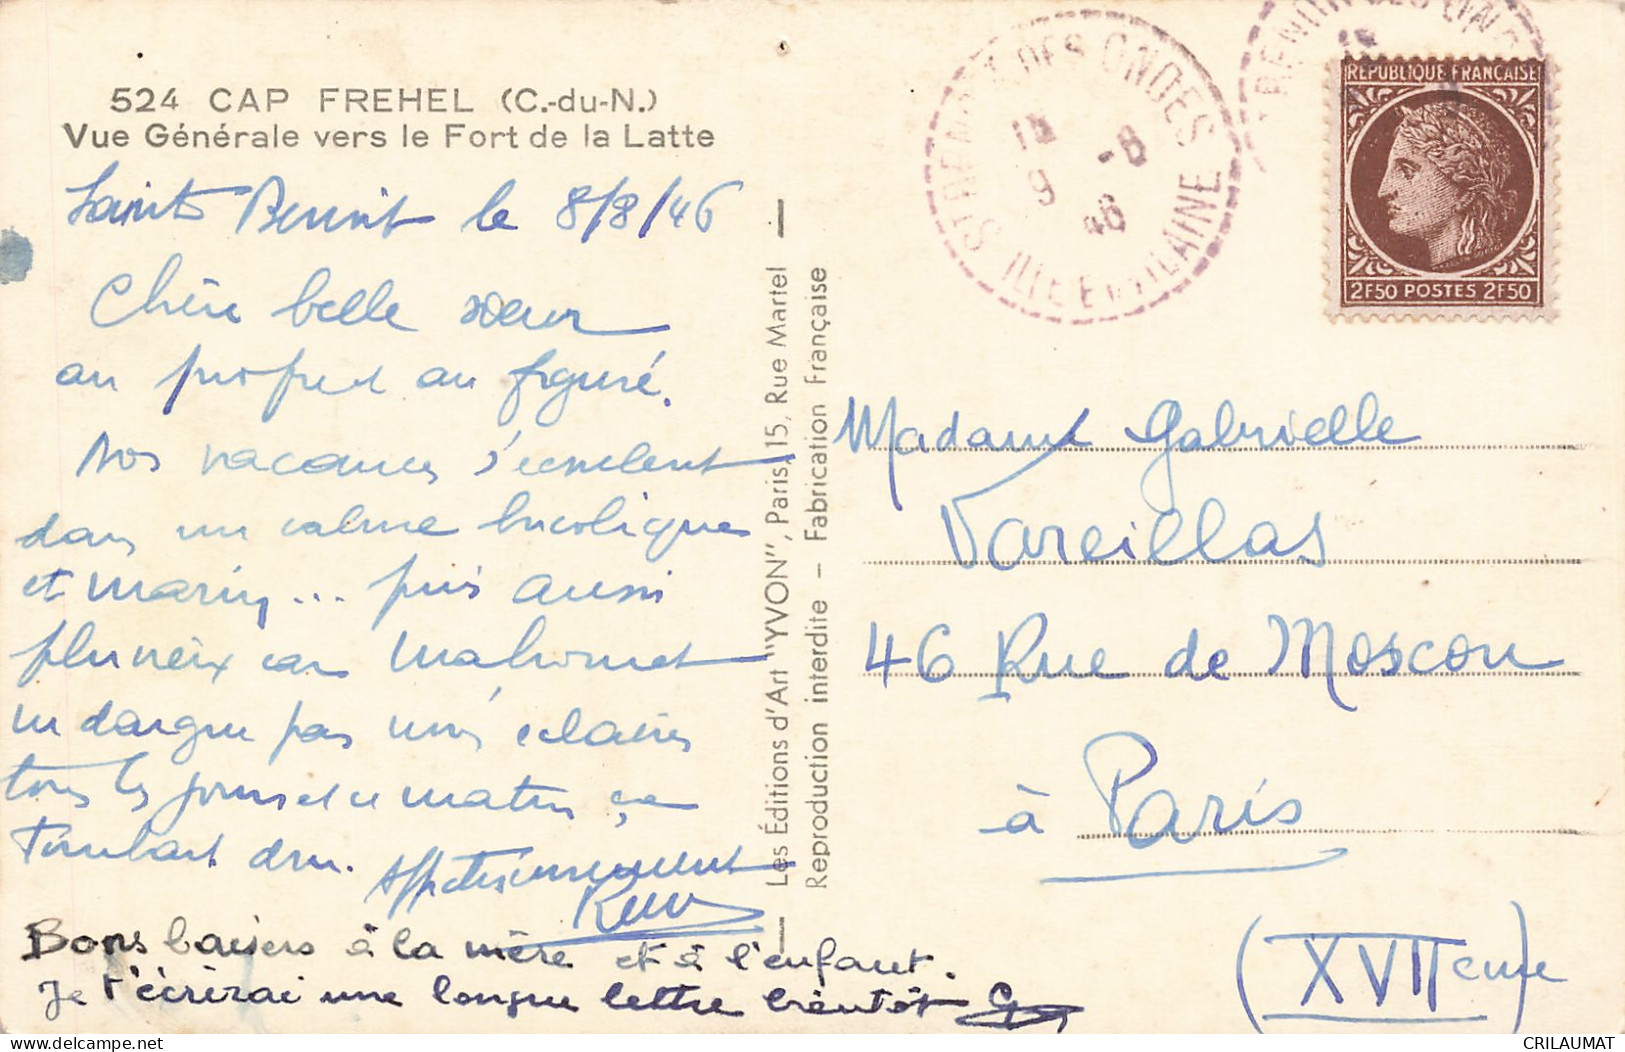 524 CAP FREHEL (C.-du-N.)
Vue Générale vers le Fort de la Latte
Saint Benoit le 8/8/46
Chère belle sœur
au propre et au figuré.
Nos vacances s'écoulent
dans un calme bucolique
et marin... puis aussi
pluvieux car Mahomet
ne dargue pas nous éclairer
tous les jours et ce matin ça
tombait dru. Affectueusement
Bons baisers à la mère et à l'enfant.
Je t'écrirai une longue lettre bientôt
Les Éditions d'Art "YVON", Paris, 15, Rue Martel
Reproduction interdite – Fabrication Française
ST BENOIT DES ONDES
9 -8
46
ILLE ET VILAINE
REPUBLIQUE FRANÇAISE
2F50 POSTES 2F50
Madame Gabrielle
Vareillas
46 Rue de Moscou
à Paris
(XVII eme
CRILAUMAT